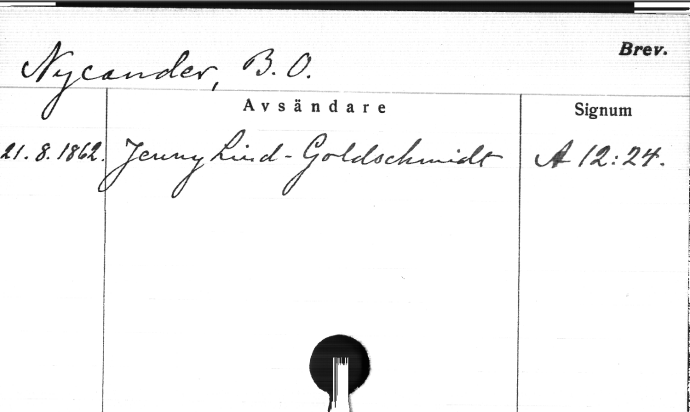 Nycander, B. O.
Brev.
Avsändare
Signum
21. 8. 1862. Jenny Lind-Goldschmidt A 12:24.